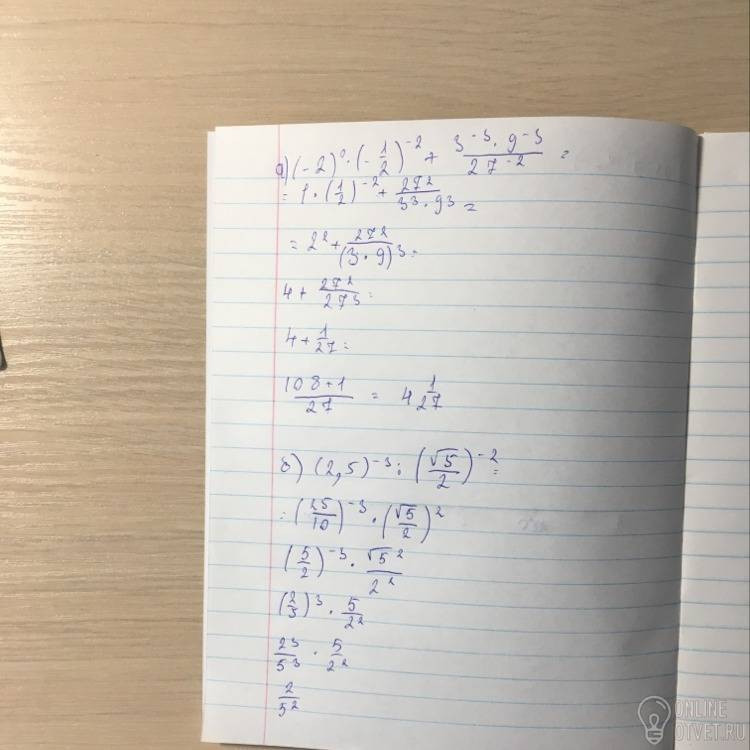 а) (-2)⁰ · (-1/2)⁻² + 3⁻³ · 9⁻³ / 27⁻² =
= 1 · (1/2)⁻² + 27² / 3³ · 9³ =
= 2² + 27² / (3 · 9)³ =
4 + 27² / 27³ =
4 + 1/27 =
108+1 / 27 = 4 1/27
б) (2,5)⁻³ : (√5/2)⁻² =
= (25/10)⁻³ · (√5/2)²
(5/2)⁻³ · √5² / 2²
(2/5)³ · 5/2²
2³/5³ · 5/2²
2/5²
ONLINE
OTVET.RU